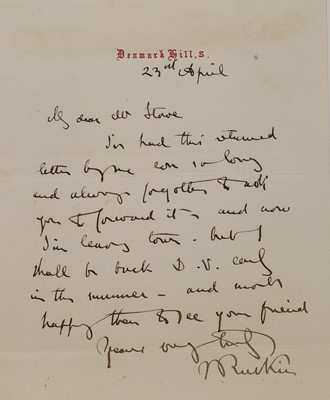 Denmark Hill, S.
23rd April
My dear Mr Stowe
I've had this returned
letter by me ever so long
and always forgotten to ask
you to forward it - and now
I'm leaving town - but I
shall be back D.V. early
in the summer - and most
happy then to see your friend
Yours very truly
J Ruskin